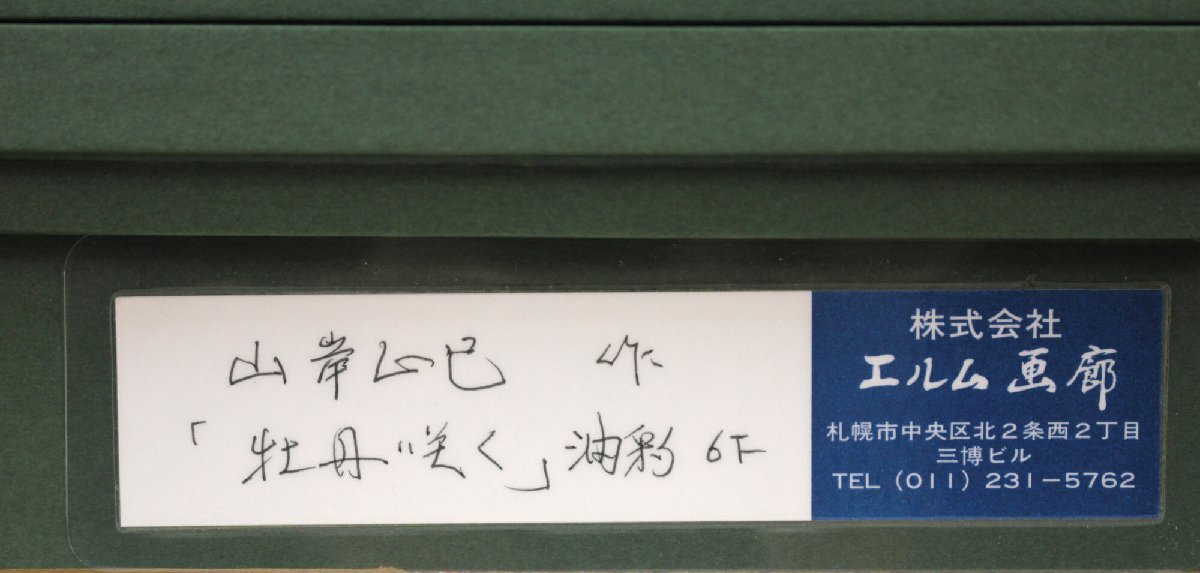 山岸正巳 作
「牡丹咲く」油彩 6F
株式会社
エルム画廊
札幌市中央区北2条西2丁目
三博ビル
TEL (011) 231-5762